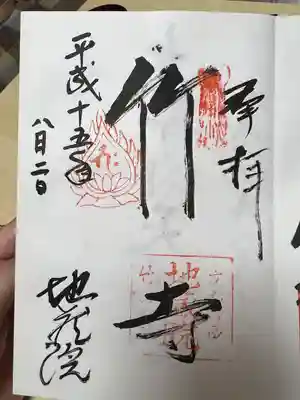 奉拝
竹寺
平成十五年
八月二日
地蔵院